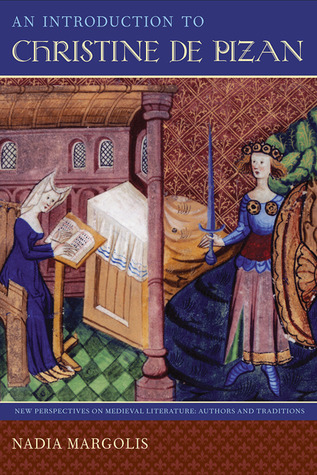 AN INTRODUCTION TO
CHRISTINE DE PIZAN
NEW PERSPECTIVES ON MEDIEVAL LITERATURE: AUTHORS AND TRADITIONS
NADIA MARGOLIS